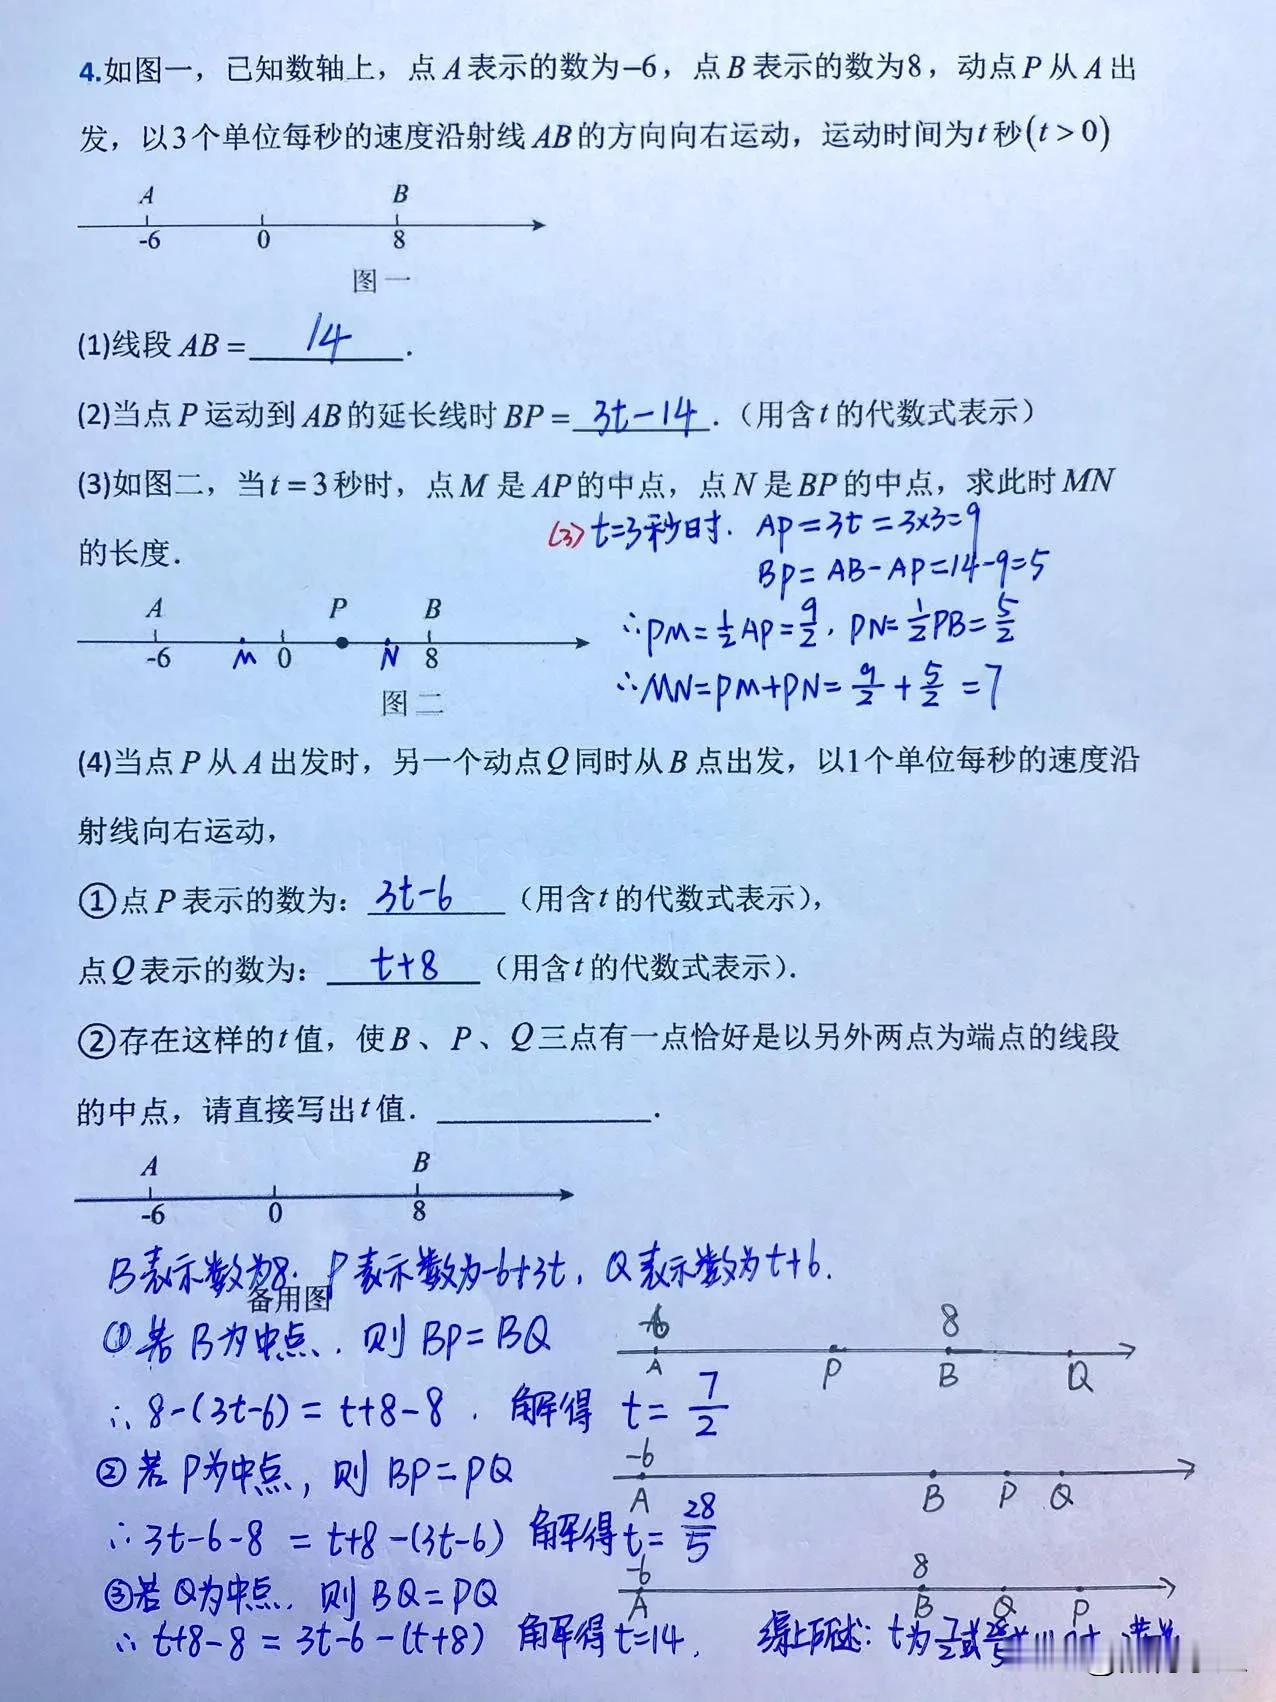 4.如图一，已知数轴上，点A表示的数为-6，点B表示的数为8，动点P从A出
发，以3个单位每秒的速度沿射线AB的方向向右运动，运动时间为t秒(t>0)
A B
-6 0 8
图一
(1)线段AB=14.
(2)当点P运动到AB的延长线时BP=3t-14.（用含t的代数式表示）
(3)如图二，当t=3秒时，点M是AP的中点，点N是BP的中点，求此时MN
的长度.
(3) t=3秒时. AP=3t=3×3=9
BP=AB-AP=14-9=5
∴PM=1/2AP=9/2, PN=1/2PB=5/2
∴MN=PM+PN=9/2+5/2=7
A P B
-6 M 0 N 8
图二
(4)当点P从A出发时，另一个动点Q同时从B点出发，以1个单位每秒的速度沿
射线向右运动，
①点P表示的数为：3t-6（用含t的代数式表示），
点Q表示的数为：t+8（用含t的代数式表示）.
②存在这样的t值，使B、P、Q三点有一点恰好是以另外两点为端点的线段
的中点，请直接写出t值.
A B
-6 0 8
B表示数为8. P表示数为-6+3t, Q表示数为t+6.
备用图
①若B为中点. 则BP=BQ
8
A P B Q
∴8-(3t-6)=t+8-8. 解得 t=7/2
②若P为中点, 则BP=PQ
-6
A B P Q
∴3t-6-8=t+8-(3t-6) 解得t=28/5
③若Q为中点. 则BQ=PQ
-6 8
A B Q P
∴t+8-8=3t-6-(t+8) 解得t=14. 综上所述: t为7/2或28/5